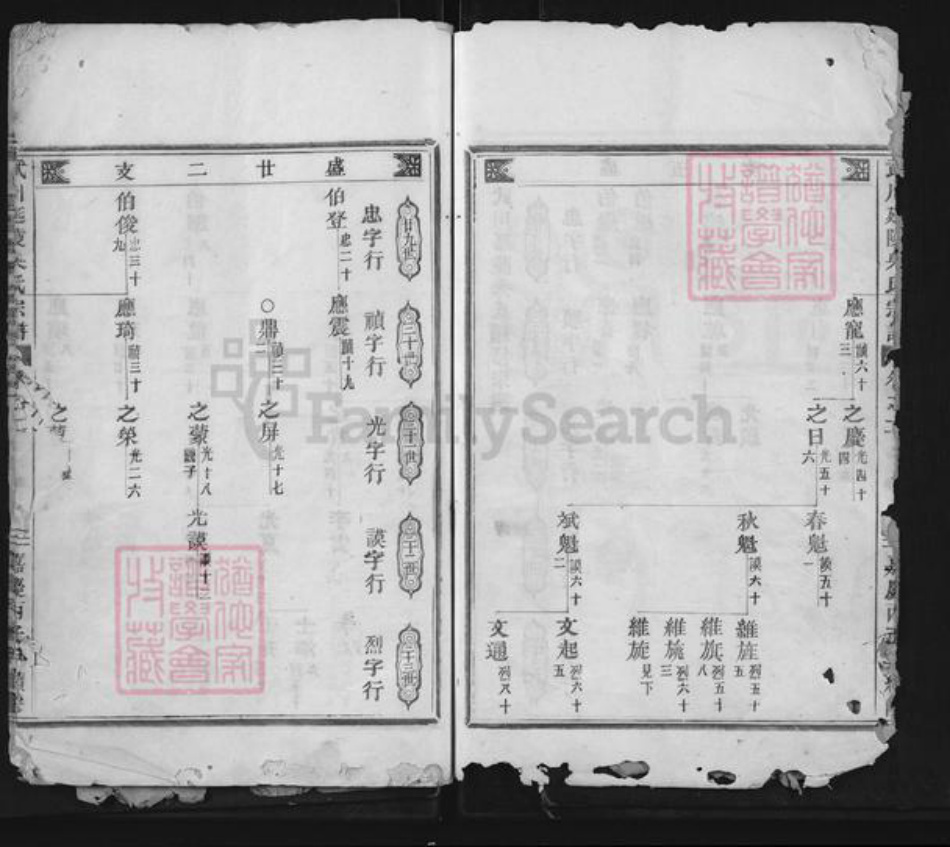 應寵 禎六十三
之慶 光四十四
之日 光五十六
春魁 謨五十一
秋魁 謨六十
斌魁 謨六十二
維旌 烈五十五
維旗 烈五十八
維旄 烈六十三
維旎 見下
文起 烈六十五
文通 烈八十
盛廿二支
廿九世 忠字行
三十世 禎字行
三十一世 光字行
三十二世 謨字行
三十三世 烈字行
伯登 忠二十
應震 禎十九
鼎 禎二十二
之屏 光十七
之蒙 光十八
光謨
伯俊 忠三十九
應琦 禎三十
之榮 光二六
猶他家譜學會收藏
猶他家譜學會收藏
FamilySearch